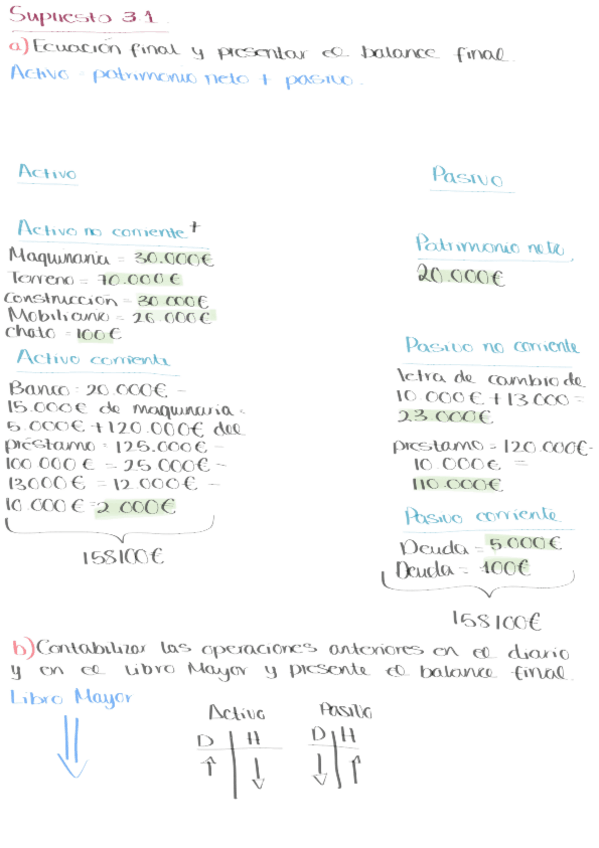 Supuesto 3.1
a) Ecuación final y presentar el balance final.
Activo = patrimonio neto + pasivo.
Activo
Pasivo
Activo no corriente +
Maquinaria = 30.000€
Terreno = 70.000€
Construcción = 30.000€
Mobiliario = 26.000€
Chato = 100€
Patrimonio neto
20.000€
Activo corriente
Banco = 20.000€ -
15.000€ de maquinaria =
5.000€ + 120.000€ del
préstamo = 125.000€ -
100.000€ = 25.000€ -
13000€ = 12.000€ -
10.000€ = 2.000€
158100€
Pasivo no corriente
letra de cambio de
10.000€ + 13.000 =
23.000€
prestamo = 120.000€-
10.000€ =
110.000€
Pasivo corriente
Deuda = 5.000€
Deuda = 100€
158100€
b) Contabilizar las operaciones anteriores en el diario
y en el Libro Mayor y presente el balance final.
Libro Mayor
Activo
Pasivo
D H
D H